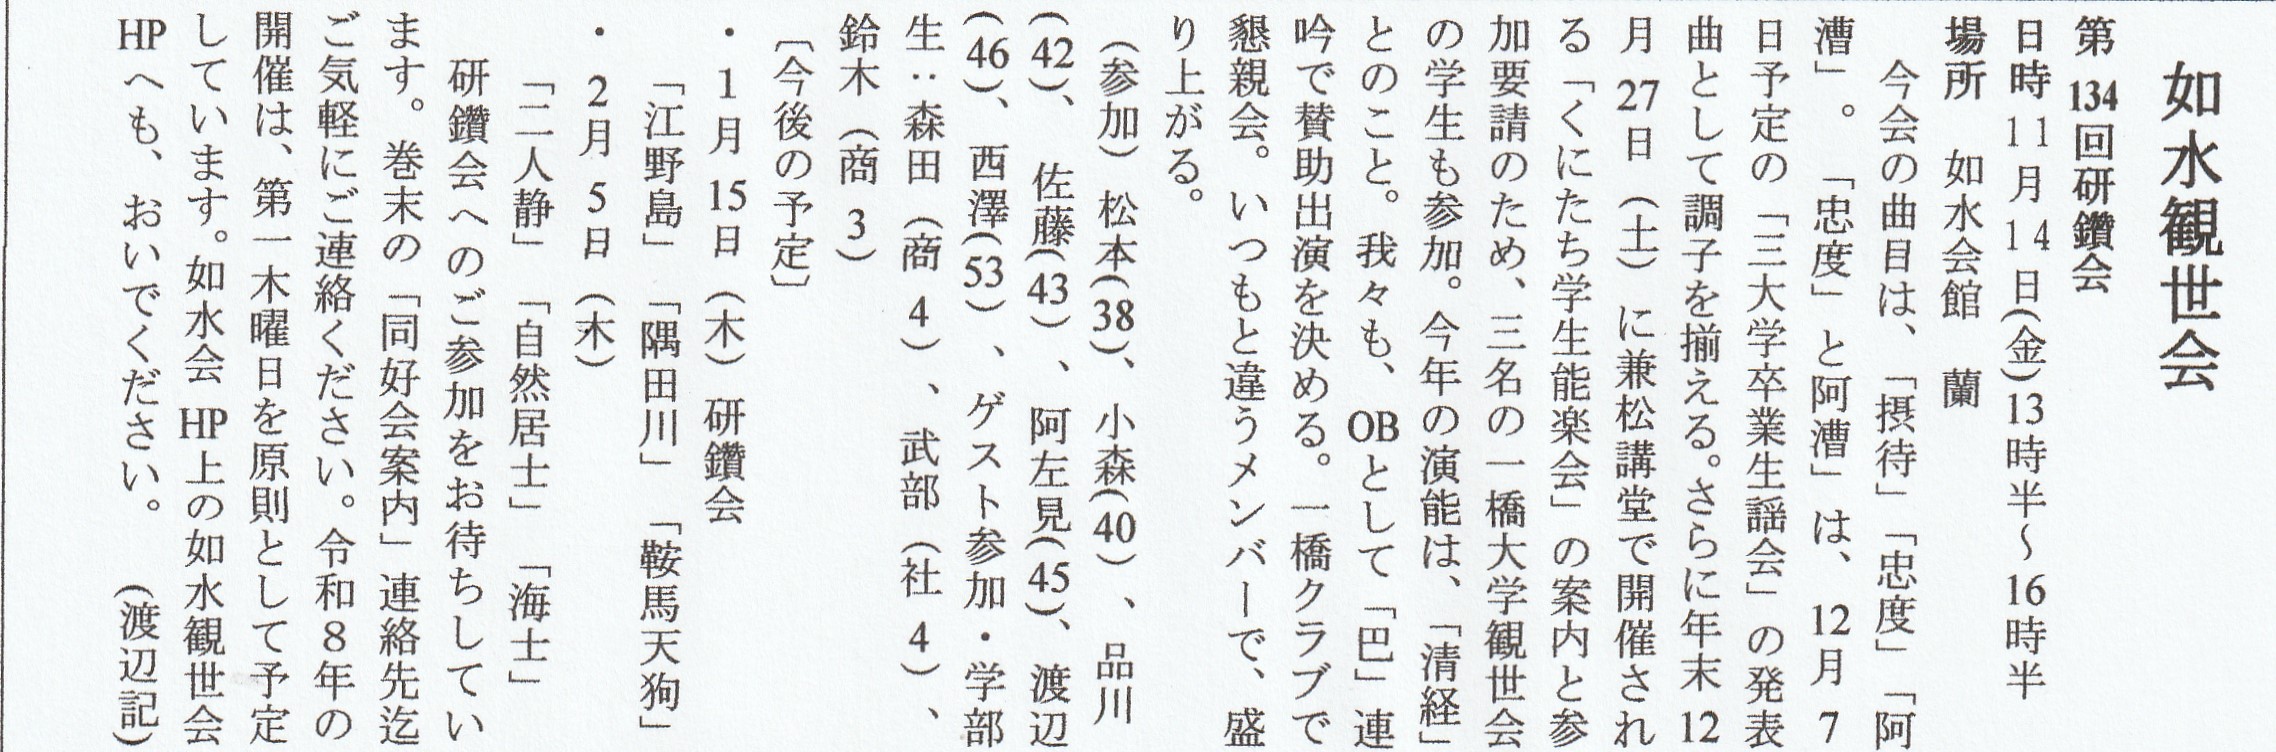 如水観世会
第134回研鑽会
日時 11月14日(金)13時半～16時半
場所　如水会館　蘭
　今会の曲目は、「摂待」「忠度」「阿
漕」。「忠度」と阿漕」は、12月7
日予定の「三大学卒業生謡会」の発表
曲として調子を揃える。さらに年末12
月27日（土）に兼松講堂で開催され
る「くにたち学生能楽会」の案内と参
加要請のため、三名の一橋大学観世会
の学生も参加。今年の演能は、「清経」
とのこと。我々も、OBとして「巴」連
吟で賛助出演を決める。一橋クラブで
懇親会。いつもと違うメンバーで、盛
り上がる。
（参加）松本(38)、小森(40)、品川
(42)、佐藤(43)、阿左見(45)、渡辺
(46)、西澤(53)、ゲスト参加・学部
生：森田（商4）、武部（社4）、
鈴木（商3）
〔今後の予定〕
・1月15日（木）研鑽会
「江野島」「隅田川」「鞍馬天狗」
・2月5日（木）
「二人静」「自然居士」「海士」
　研鑽会へのご参加をお待ちしてい
ます。巻末の「同好会案内」連絡先迄
ご気軽にご連絡ください。令和8年の
開催は、第一木曜日を原則として予定
しています。如水会HP上の如水観世会
HPへも、おいでください。　（渡辺記）